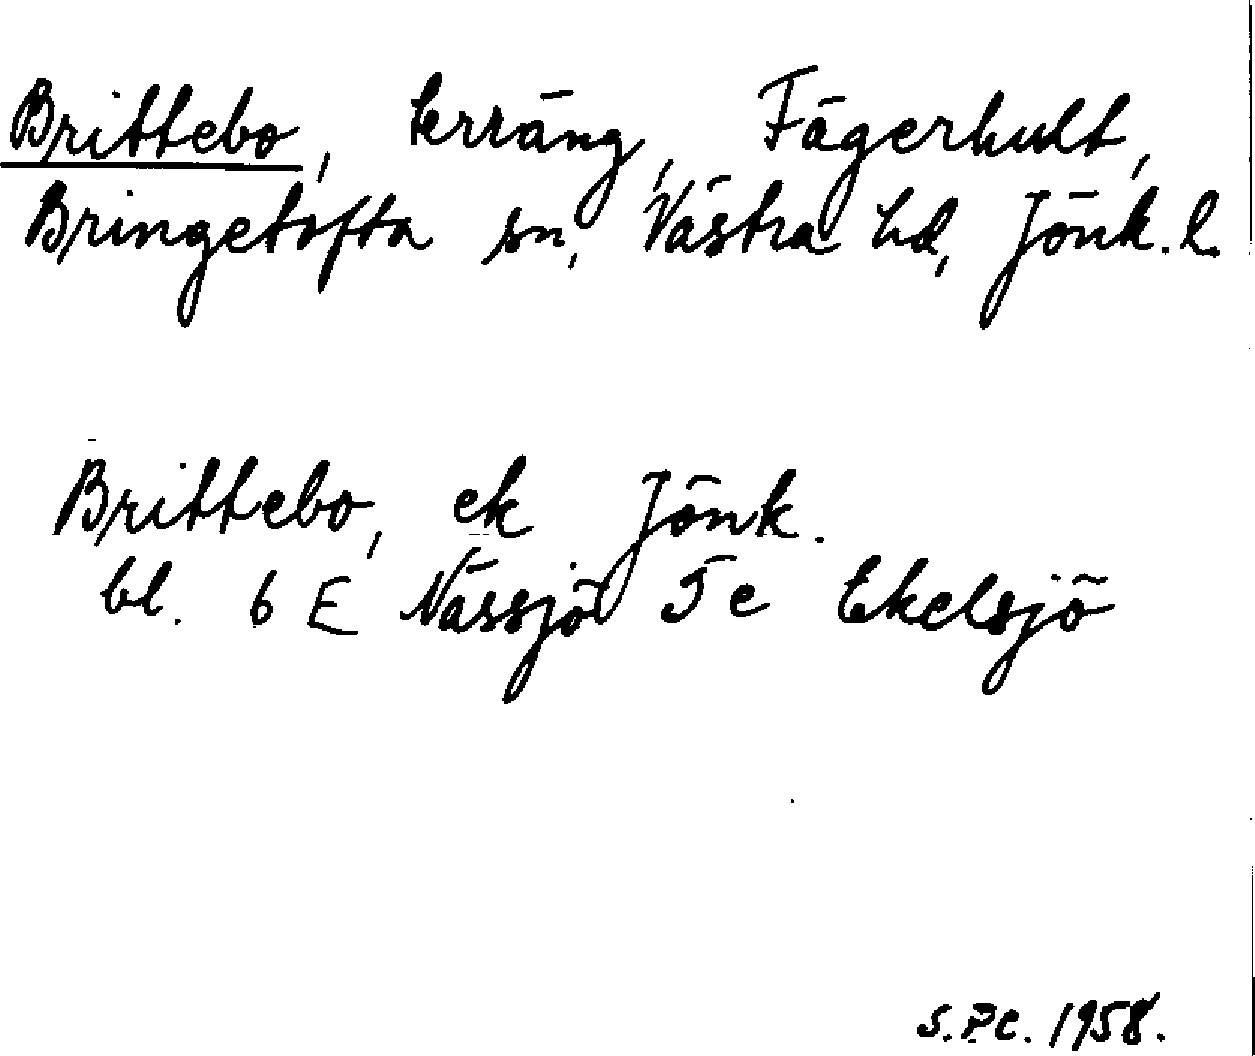 Brittebo, terräng, Fägerhult,
Bringetofta sn, Västra hd, Jönk. l.
Brittebo, ek Jönk.
bl. 6 E Nässjö 5 e Ekelsjö
S.P.C. 1958.